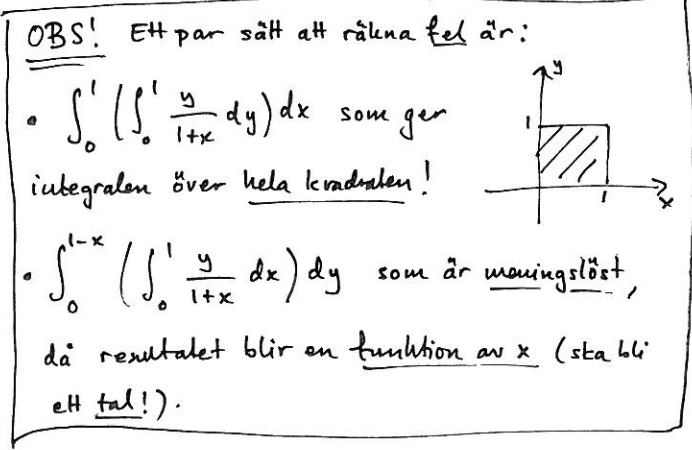 OBS! Ett par sätt att räkna fel är:
• ∫₀¹ (∫₀¹ y/(1+x) dy) dx som ger
integralen över hela kvadraten!
y
1
1
x
• ∫₀^(1-x) (∫₀¹ y/(1+x) dx) dy som är meningslöst,
då resultatet blir en funktion av x (ska bli
ett tal!).